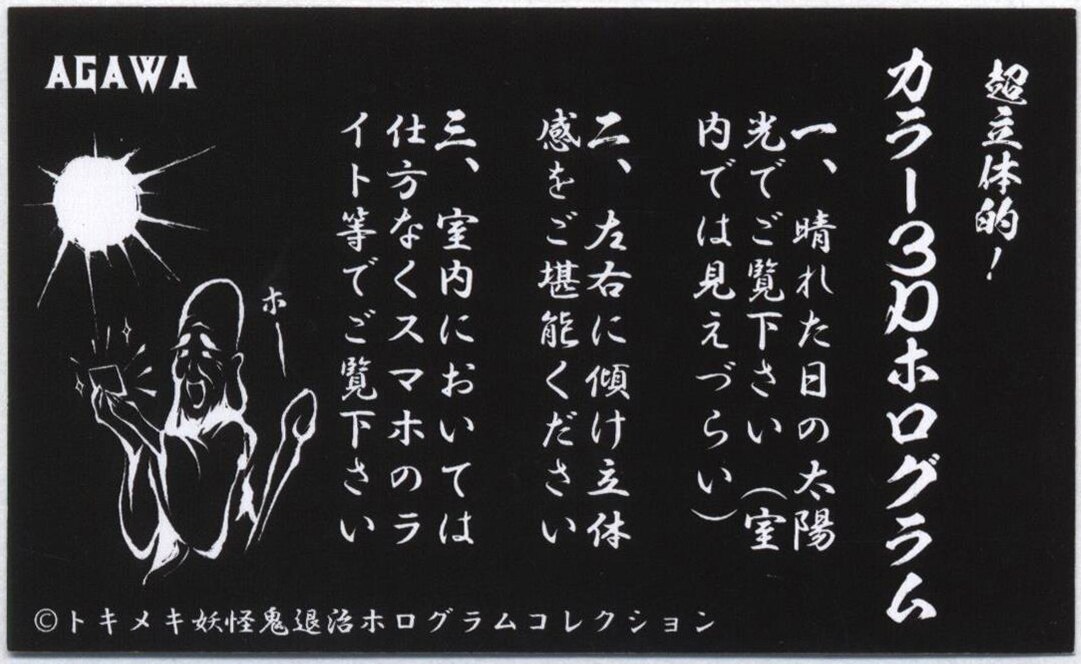 超立体的！
カラー3Dホログラム
一、晴れた日の太陽
光でご覧下さい（室
内では見えづらい）
二、左右に傾け立体
感をご堪能ください
三、室内においては
仕方なくスマホのラ
イト等でご覧下さい
AGAWA
ホー
©トキメキ妖怪鬼退治ホログラムコレクション